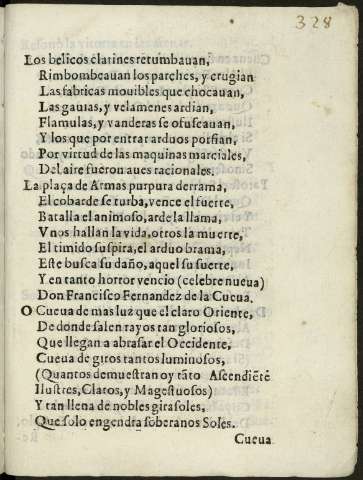 328
Los belicos clarines retumbauan,
Rimbombeauan los parches, y crugian
Las fabricas mouibles que chocauan,
Las gauias, y velamenes ardian,
Flamulas, y vanderas se ofuscauan,
Y los que por entrar arduos porfian,
Por virtud de las maquinas marciales,
Del aire fueron aues racionales.
La plaça de Armas purpura derrama,
El cobarde se turba, vence el fuerte,
Batalla el animoso, arde la llama,
Vnos hallan la vida, otros la muerte,
El timido suspira, el arduo brama,
Este busca su daño, aquel su suerte,
Y en tanto horror vencio (celebre nueua)
Don Francisco Fernandez de la Cueua.
O Cueua de mas luz que el claro Oriente,
De donde salen rayos tan gloriosos,
Que llegan a abrasar el Occidente,
Cueua de giros tantos luminosos,
(Quantos demuestran oy tãto Ascendiẽte
Ilustres, Claros, y Magestuosos)
Y tan llena de nobles girasoles,
Que solo engendra soberanos Soles.
Cueua